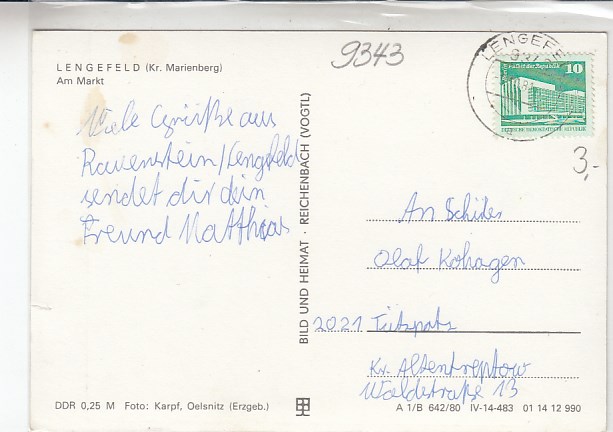 LENGEFELD (Kr. Marienberg)
Am Markt
9343
LENGEFE
10
DEUTSCHE DEMOKRATISCHE REPUBLIK
3,-
Viele Grüße aus
Rauenstein/Lengefeld
sendet dir dein
Freund Matthias
BILD UND HEIMAT · REICHENBACH (VOGTL)
An Schüler
Olaf Kohagen
2021 Tützpatz
Kr. Altentreptow
Waldestraße 13
DDR 0,25 M Foto: Karpf, Oelsnitz (Erzgeb.)
A 1/B 642/80 IV-14-483 01 14 12 990